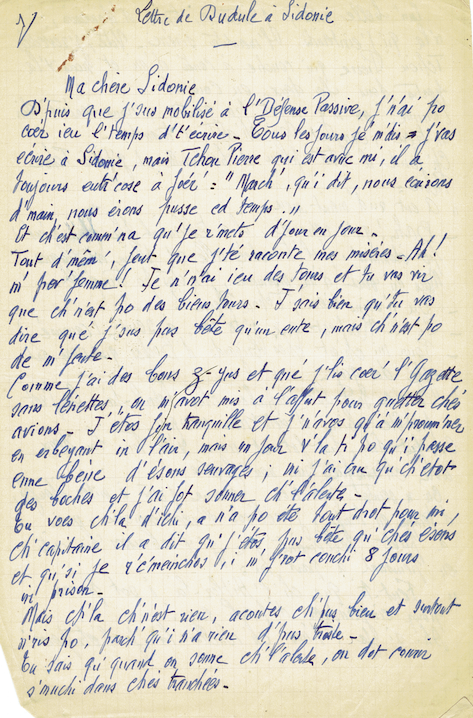 Lettre de Dudule à Sidonie
Ma chère Sidonie
D'puis que j'sus mobilisé à l'Défense Passive, j'n'ai po
coér ieu l'temps d't'écrire - Tous les jours je m'dis = j'vas
écrire à Sidonie, mais Tchou Pierre qui est avec mi, il a
toujours eut' cose à foér' = "March', qu'i dit, nous écirons
d'main, nous érons pusse ed temps."
Et ch'est comm'na qu'je r'mets d'jour en jour -
Tout d'mêm', feut que j'té raconte mes misères - Ah!
m' pov' femme! Je n'n'ai ieu des tours et tu vas vir
que ch'n'est po des biens tours - J'sais bien qu'tu vas
dire qué j'sus pas bête qu'un eute, mais ch'n'est po
de m'feute -
Comme j'ai des bons z-yus et qué j'lis coér l'Gazette
sans lénettes, on m'avot mis à l'affut pour guetter chés
avions - J'étos fin tranquille et j'n'avos qu'à m'prouminer
en erbeyant in l'air, mais un jour v'la ti po qu'i passe
enne bène d'ésons sauvages; mi j'ai cru qu'ch'étot
des boches et j'ai fot sonner ch'l'alerte -
Tu voés ch'la d'ichi, a n'a po été tout drot pour mi,
ch'capitaine il a dit qu'j'étos pus bête qu'chés ésons
et qu'si je r'c'menchos, i m'f'rot couchi 8 jours
in prison -
Mais ch'la ch'n'est rien, acoutes ch'pus bien et surtout
n'ris po, parch'qu'i n'a rien d'pus triste -
Tu sais qu'quand on sonne ch'l'alerte, on dot courir
s'muchi dans chés tranchées -